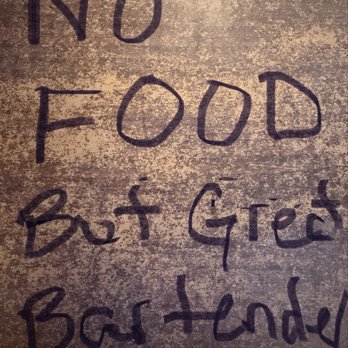 NO
FOOD
But Great
Bartender